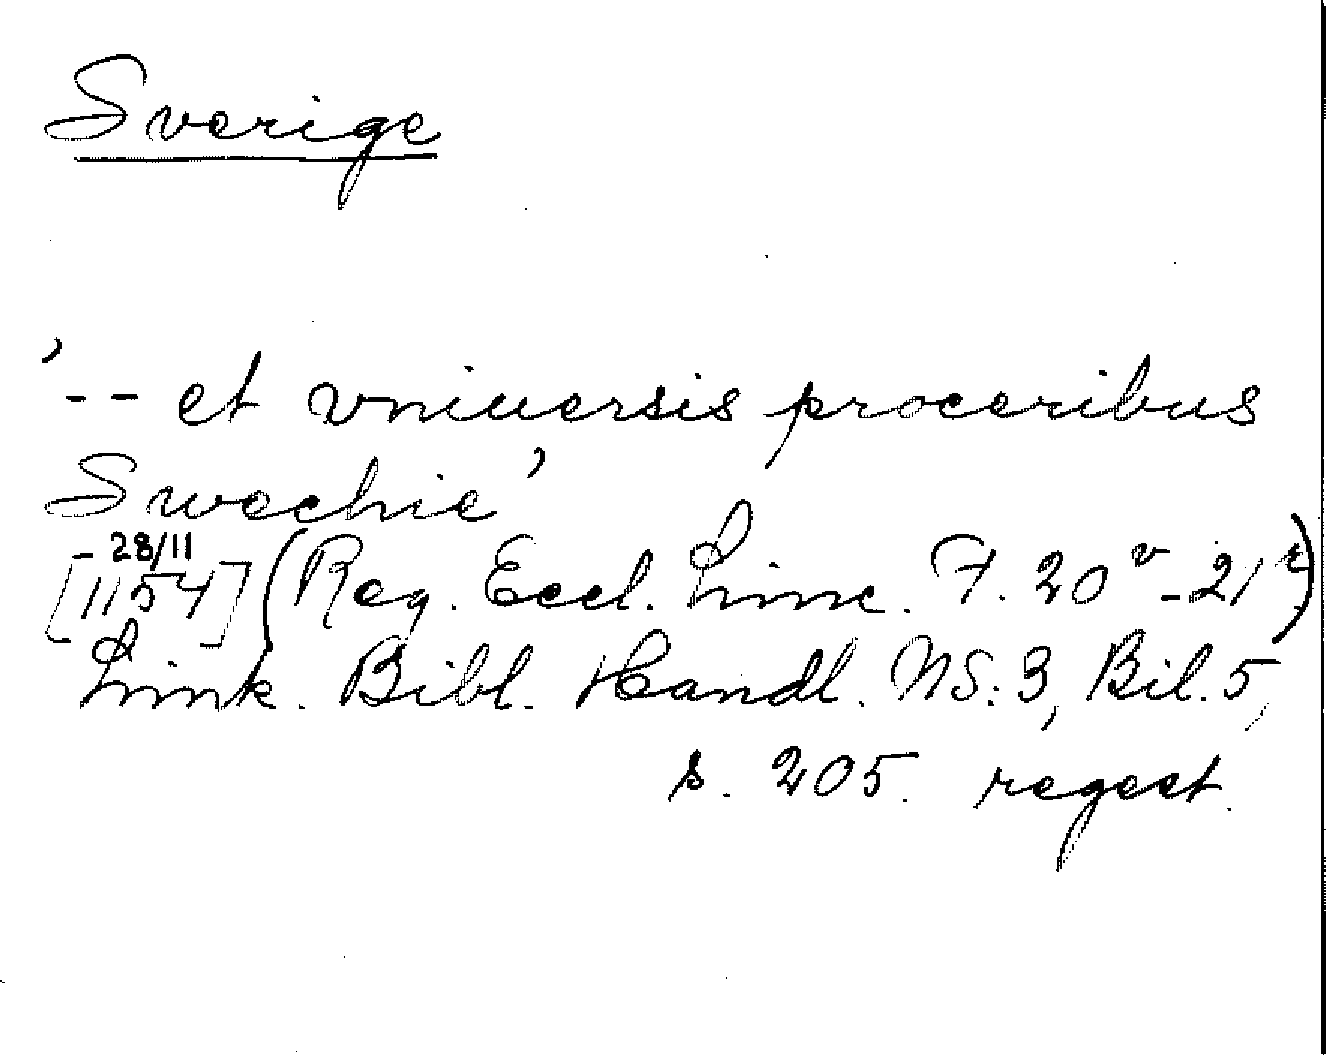 Sverige
'-- et vniuersis proceribus
Swechie'
- 28/11
[1154] (Reg. Eccl. Linc. F. 20v-21r)
Link. Bibl. Handl. NS: 3, Bil. 5,
s. 205. regest.